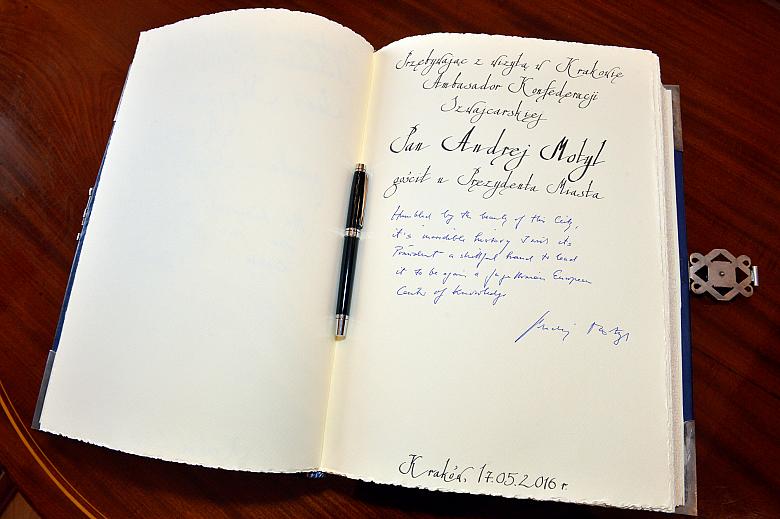 Przebywając z wizytą w Krakowie
Ambasador Konfederacji
Szwajcarskiej
Pan Andrej Motyl
gościł u Prezydenta Miasta
Humbled by the beauty of this City,
it's incredible history I wish its
President a skillful hand to lead
it to be again a Jagellonian European
Center of Knowledge
Andrej Motyl
Kraków, 17.05.2016 r.